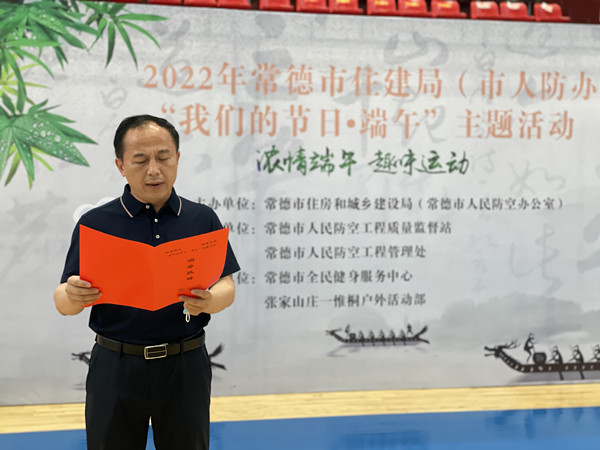 2022年常德市住建局（市人防办
“我们的节日•端午”主题活动
浓情端午 趣味运动
主办单位：常德市住房和城乡建设局（常德市人民防空办公室）
单位：常德市人民防空工程质量监督站
常德市人民防空工程管理处
单位：常德市全民健身服务中心
张家山庄一惟桐户外活动部